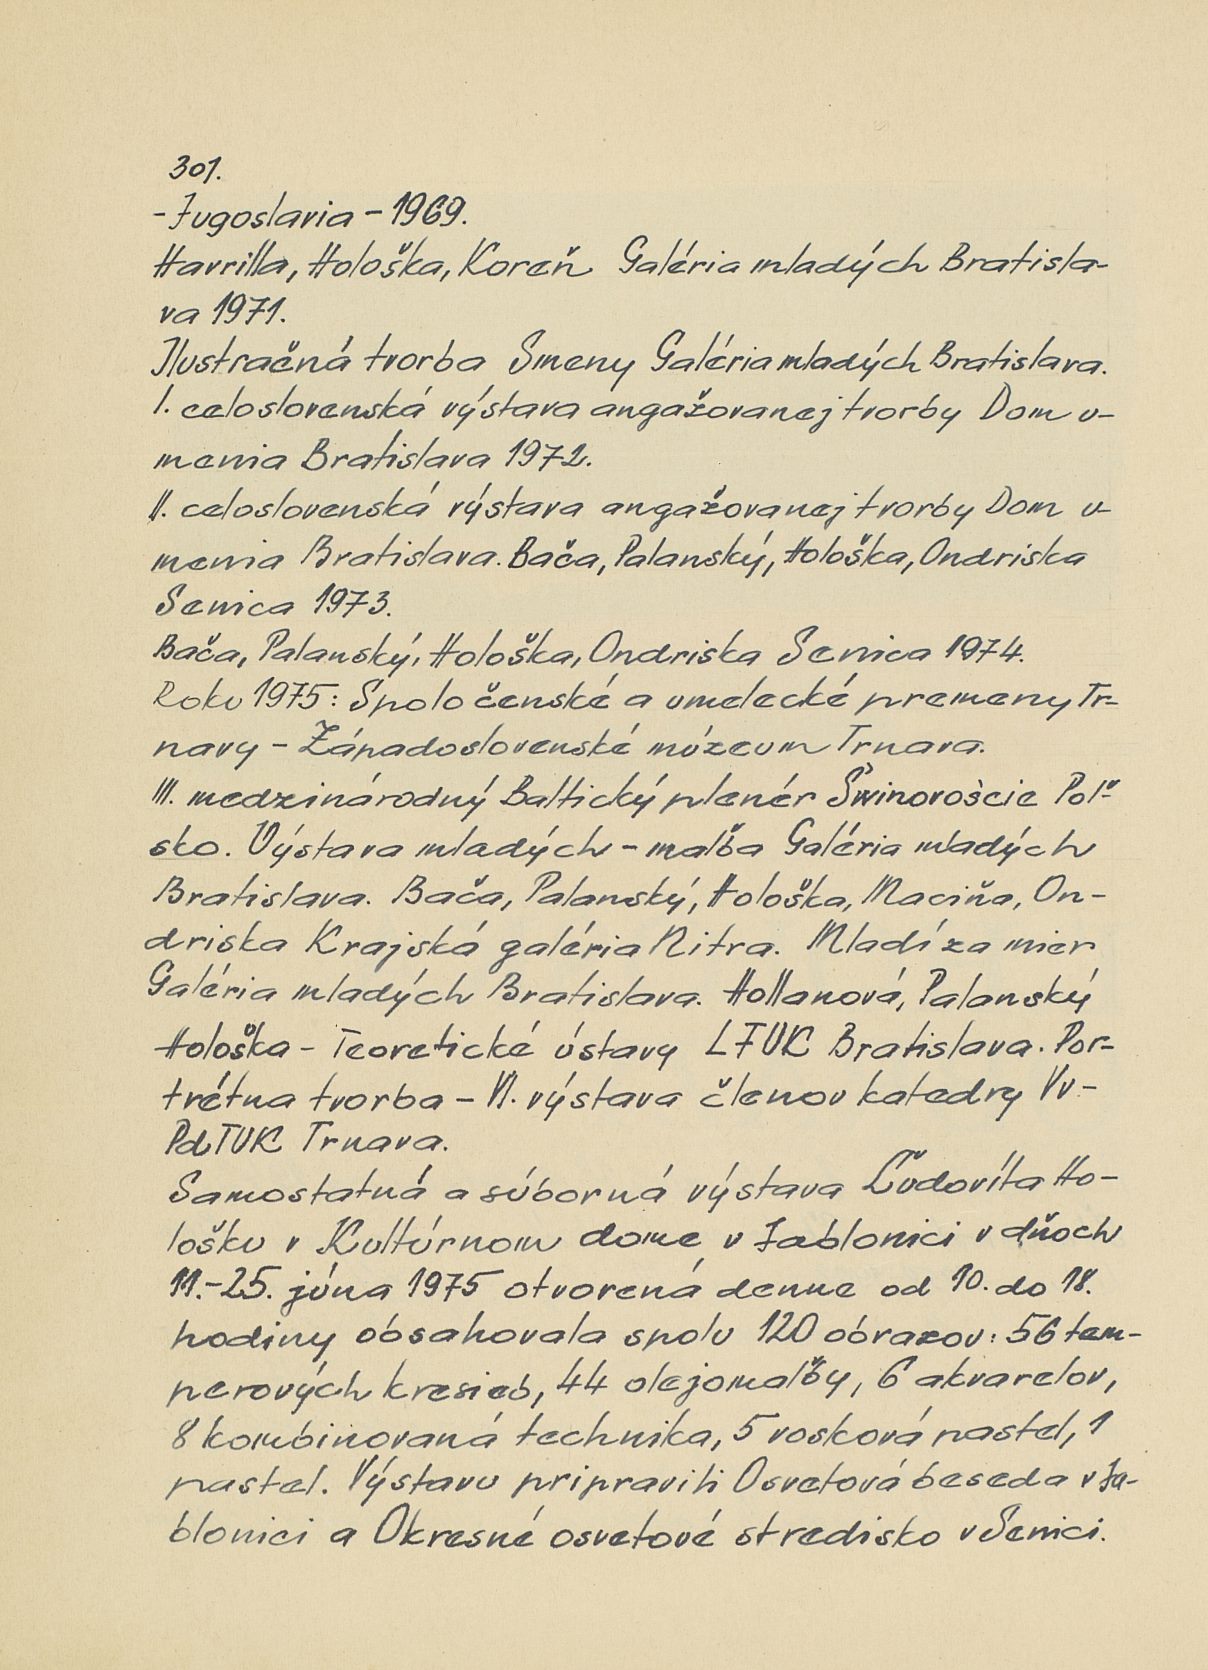 301.
- Jugoslavia - 1969.
Havrilla, Hološka, Koreň Galéria mladých Bratisla-
va 1971.
Ilustračná tvorba Smeny Galéria mladých Bratislava.
I. celoslovenská výstava angažovanej tvorby Dom u-
menia Bratislava 1972.
II. celoslovenská výstava angažovanej tvorby Dom u-
menia Bratislava. Bača, Palanský, Hološka, Ondriska
Senica 1973.
Bača, Palanský, Hološka, Ondriska Senica 1974.
Roku 1975: Spoločenské a umelecké premeny Tr-
navy - Západoslovenské múzeum Trnava.
III. medzinárodný Baltický plenér Świnoroście Poľ-
sko. Výstava mladých - maľba Galéria mladých
Bratislava. Bača, Palanský, Hološka, Maciňa, On-
driska Krajská galéria Nitra. Mladí za mier
Galéria mladých Bratislava. Hollanová, Palanský
Hološka - Teoretické ústavy LFUK Bratislava. Por-
trétna tvorba - VI. výstava členov katedry Vv -
PdFUK Trnava.
Samostatná a súborná výstava Ľudovíta Ho-
lošku v Kultúrnom dome v Jablonici v dňoch
11.-25. júna 1975 otvorená denne od 10. do 18.
hodiny obsahovala spolu 120 obrazov: 56 tem-
perových kresieb, 44 olejomaľby, 6 akvarelov,
8 kombinovaná technika, 5 vosková pastel, 1
pastel. Výstavu pripravili Osvetová beseda v Ja-
blonici a Okresné osvetové stredisko v Senici.